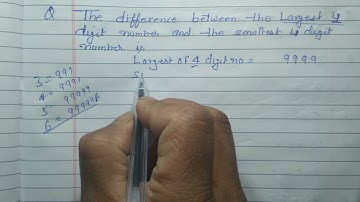 Q The difference between the Largest 4
digit number and the smallest 4 digit
number is
Largest of 4 digit no = 9999
S
3 = 999
4 = 9999
5 = 99999
6 = 999999